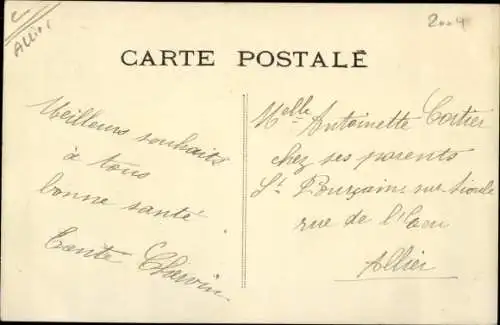 Allier
2004
CARTE POSTALE
Meilleurs souhaits
à tous
bonne santé
Tante Chervin
Melle Antoinette Cortier
chez ses parents
St Pourçain sur Sioule
rue de l'Eau
Allier